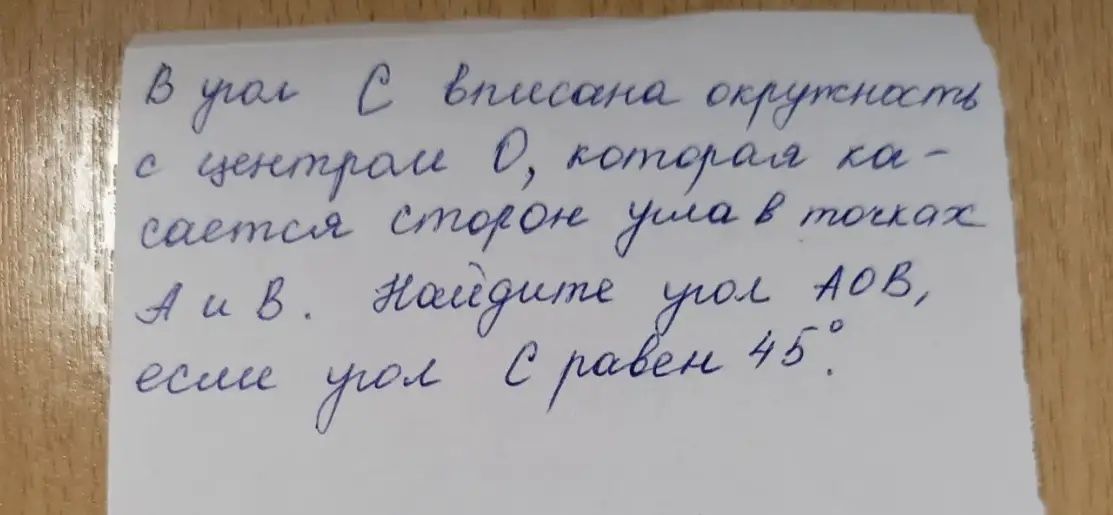 В угол С вписана окружность
с центром О, которая ка-
сается сторон угла в точках
А и В. Найдите угол АОВ,
если угол С равен 45°.